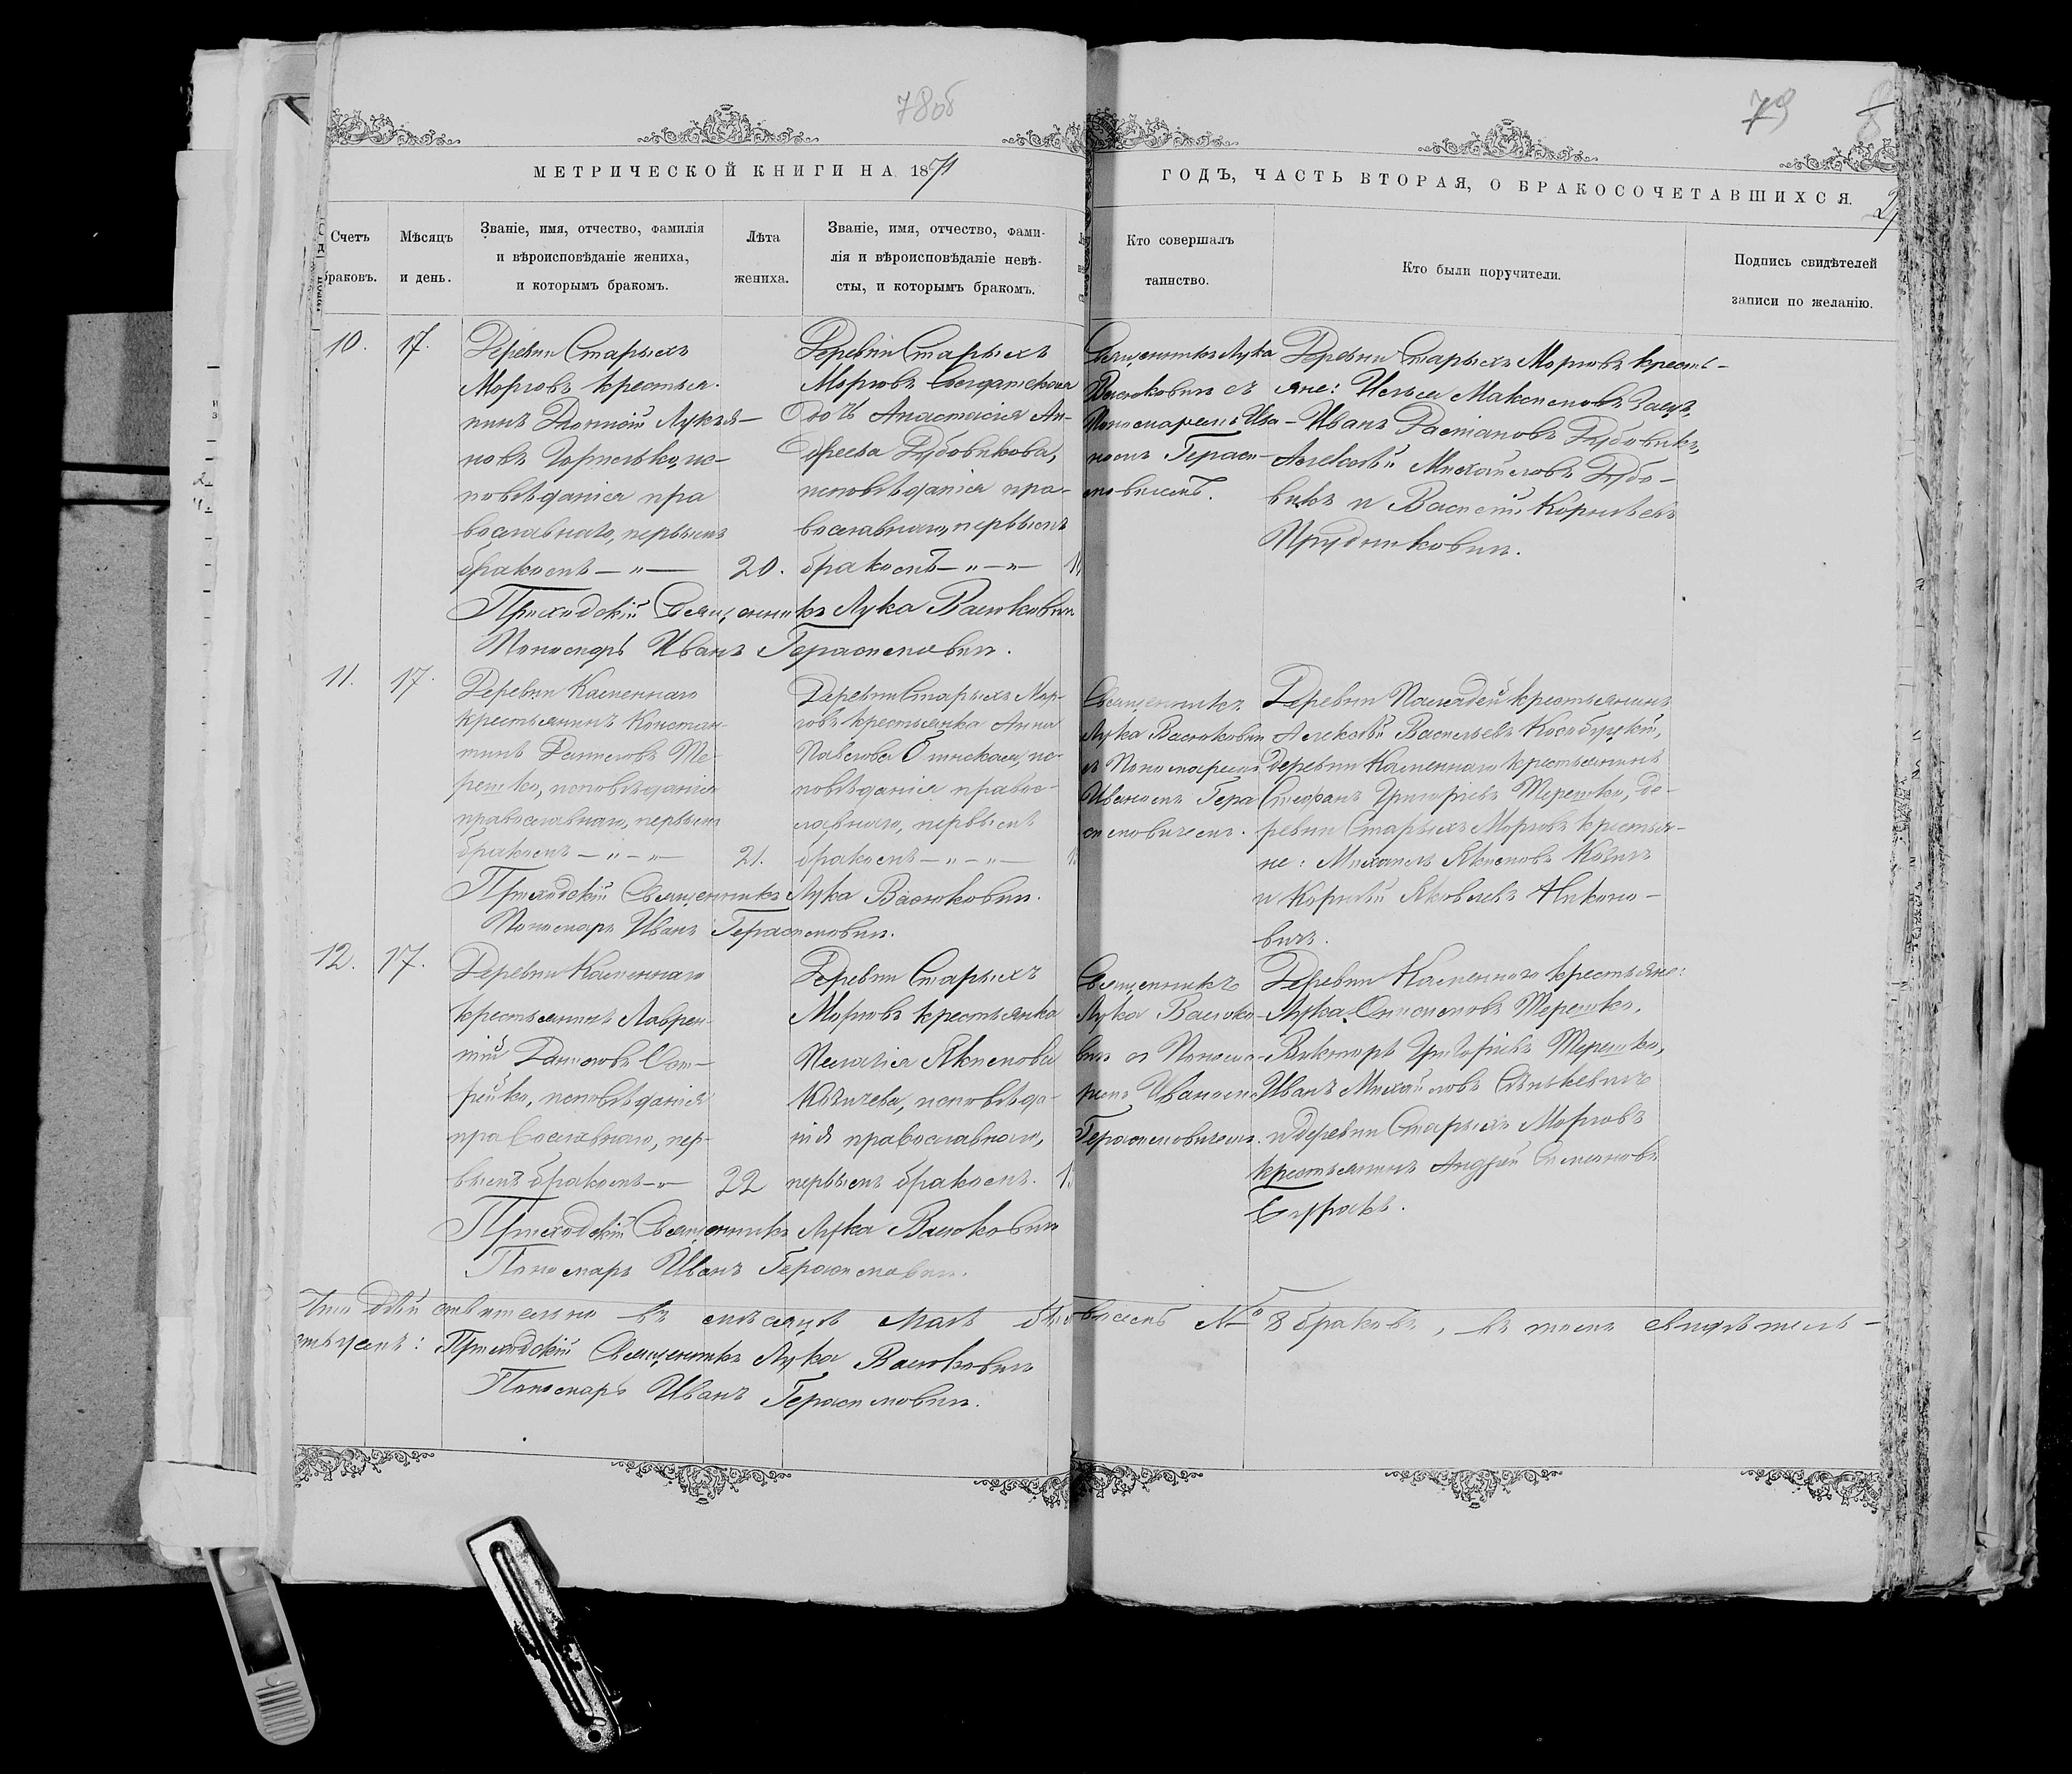 78об
79
МЕТРИЧЕСКОЙ КНИГИ НА 1871
ГОДЪ, ЧАСТЬ ВТОРАЯ, О БРАКОСОЧЕТАВШИХСЯ.
Счетъ
браковъ.
Мѣсяцъ
и день.
Званіе, имя, отчество, фамилія
и вѣроисповѣданіе жениха,
и которымъ бракомъ.
Лѣта
жениха.
Званіе, имя, отчество, фами-
лія и вѣроисповѣданіе невѣ-
сты, и которымъ бракомъ.
Кто совершалъ
таинство.
Кто были поручители.
Подпись свидѣтелей
записи по желанію.
10.
17.
Деревни Старыхъ
Морговъ крестья-
нинъ
новъ ис-
повѣданія пра
вославнаго, первымъ
бракомъ — „ —
20.
Деревни Старыхъ
Морговъ Солдатская
дочь Анастасія Ан-
дреева Дубовикова,
исповѣданія пра-
вославнаго, первымъ
бракомъ — „ — „ —
Священникъ Лука
Васюковичъ съ
Пономаремъ Ива-
номъ Гераси-
мовичемъ.
Деревни Старыхъ Морговъ кресть-
яне: Максимовъ Заяцъ,
Иванъ Дубовикъ,
Алексѣй Михайловъ Дубо-
викъ и Василій Корнѣевъ
Прудниковичъ.
Приходскій Священникъ Лука Васюковичъ
Пономарь Иванъ Герасимовичъ.
11.
17.
Деревни Каменнаго
крестьянинъ Констан-
тинъ Даниловъ Те-
решко, исповѣданія
православнаго, первымъ
бракомъ — „ — „
21.
Деревни Старыхъ Мор-
говъ крестьянка Анна
Павлова ис-
повѣданія правос-
лавнаго, первымъ
бракомъ — „ — „ —
Священникъ
Лука Васюковичъ
съ Пономаремъ
Иваномъ Гера
симовичемъ.
Деревни крестьянинъ
Алексѣй Васильевъ Кособуцкій,
деревни Каменнаго крестьянинъ
Стефанъ Григорьевъ Терешко, де-
ревни Старыхъ Морговъ крестья-
не: Михаилъ Якимовъ
и Корнѣй Яковлевъ Никоно-
вичъ.
Приходскій Священникъ Лука Васюковичъ.
Пономарь Иванъ Герасимовичъ.
12.
17.
Деревни Каменнаго
крестьянинъ Лаврен-
тій Даниловъ
исповѣданія
православнаго, пер-
вымъ бракомъ — „
22
Деревни Старыхъ
Морговъ крестьянка
Пелагія Якимова
исповѣда-
нія православнаго,
первымъ бракомъ.
Священникъ
Лука Васюко-
вичъ съ Понома-
ремъ Иваномъ
Герасимовичемъ.
Деревни Каменнаго крестьяне:
Лука Терешко,
Викторъ Григорьевъ Терешко,
Иванъ Михайловъ Сенькевичъ
и деревни Старыхъ Морговъ
крестьянинъ Андрей Симеоновъ
Приходскій Священникъ Лука Васюковичъ
Пономарь Иванъ Герасимовичъ.
Что дѣйствительно въ мѣсяцѣ Маѣ было всѣхъ № 8 браковъ, въ томъ свидѣтель-
ствуемъ: Приходскій Священникъ Лука Васюковичъ
Пономарь Иванъ Герасимовичъ.